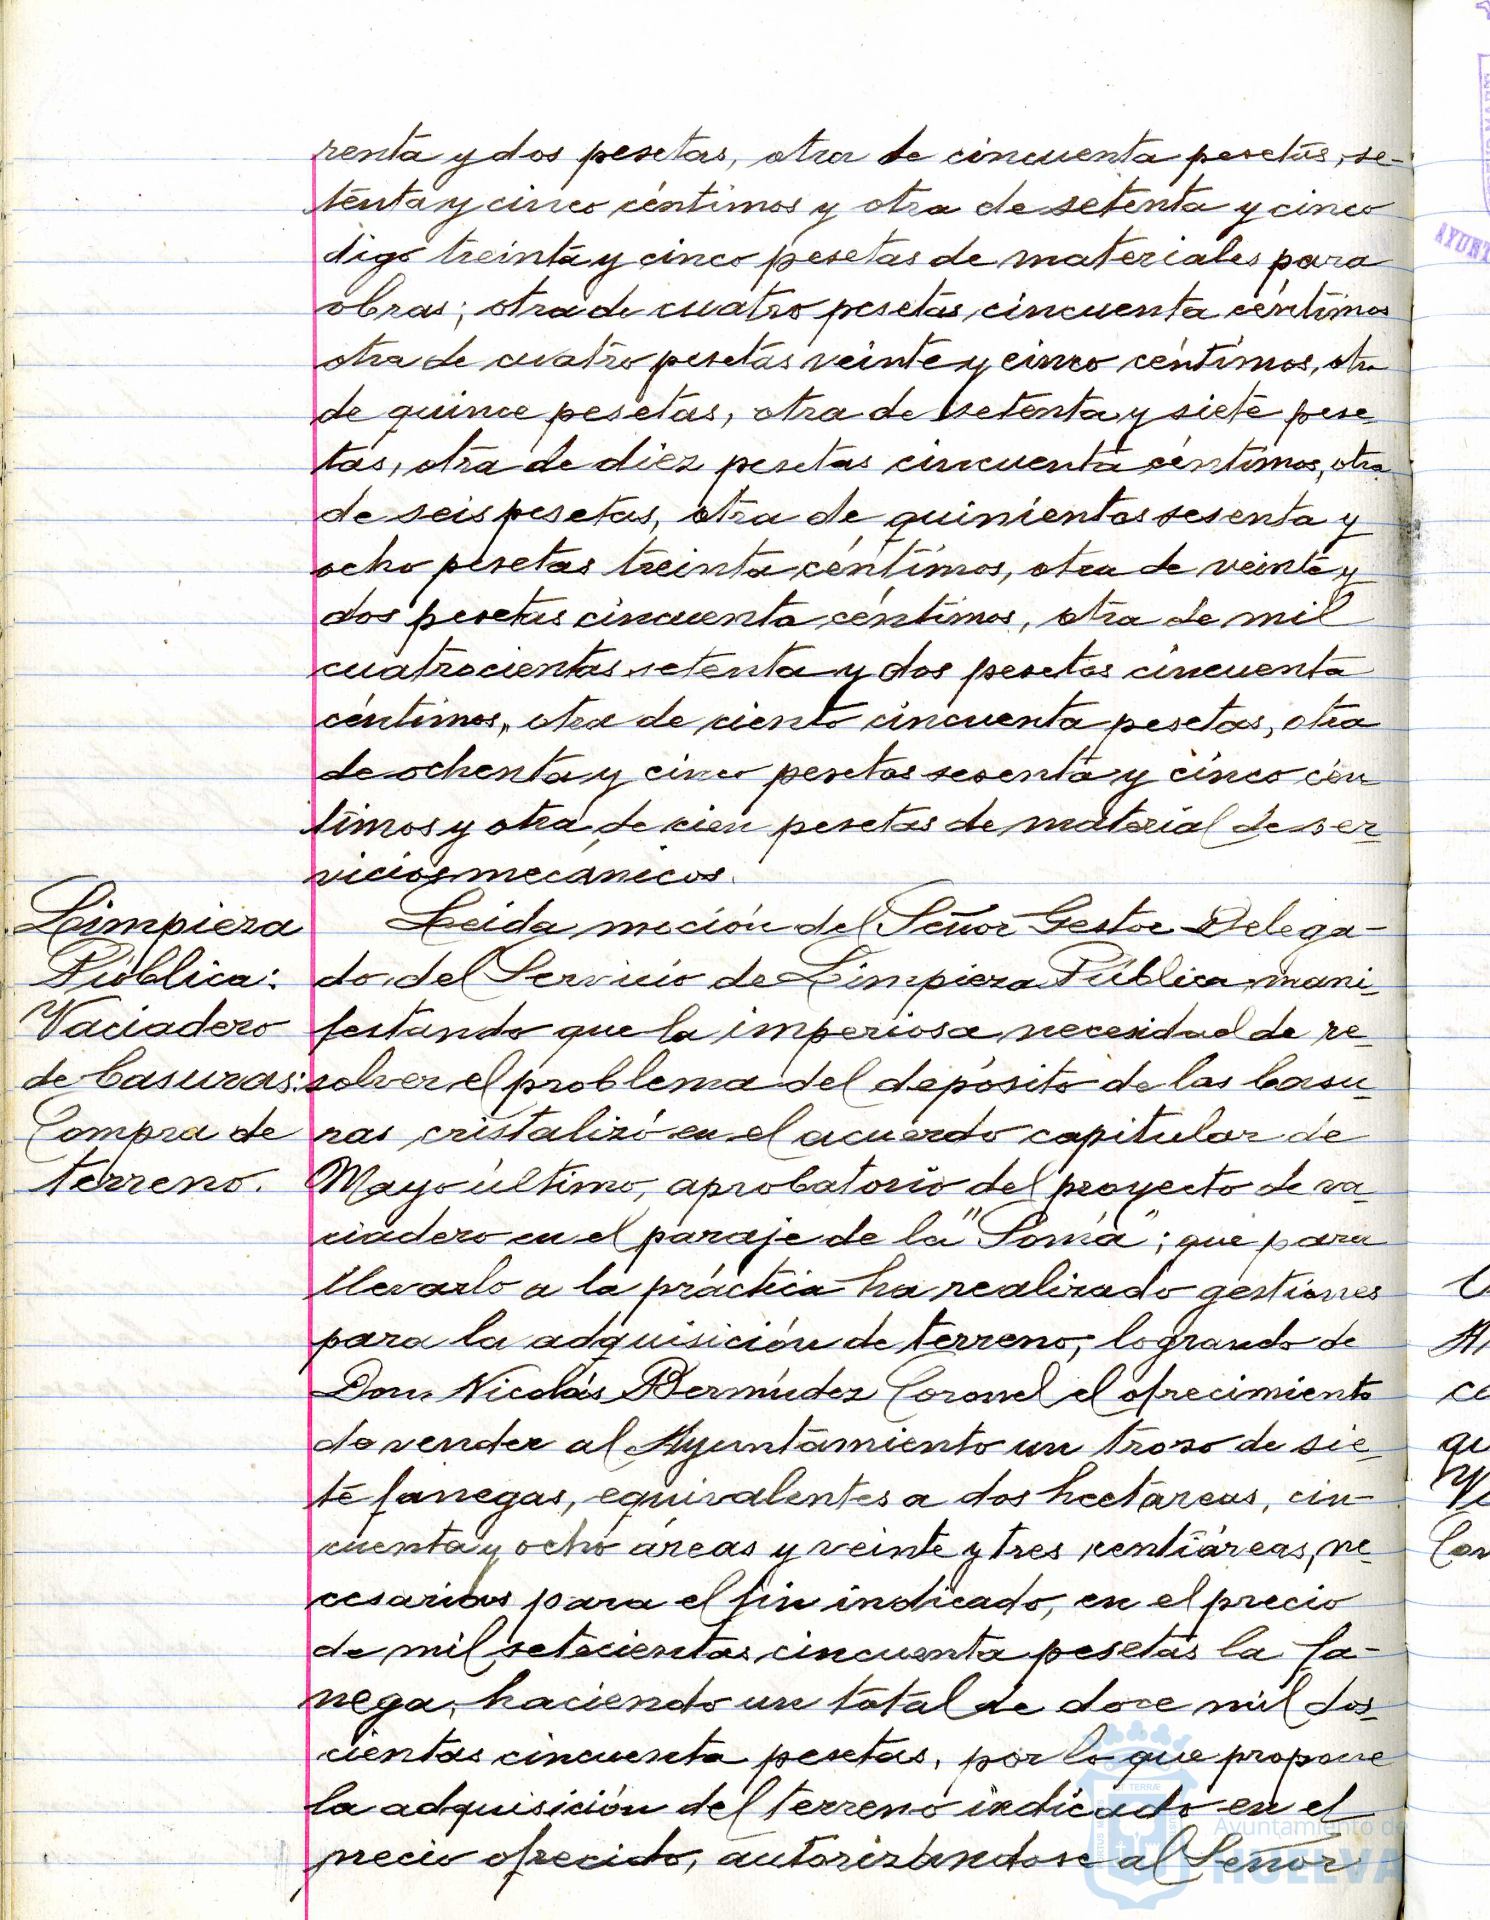 renta y dos pesetas, otra de cincuenta pesetas, se-
tenta y cinco céntimos y otra de setenta y cinco
digo treinta y cinco pesetas de materiales para
obras; otra de cuatro pesetas cincuenta céntimos
otra de cuatro pesetas veinte y cinco céntimos, otra
de quince pesetas, otra de setenta y siete pese-
tas, otra de diez pesetas cincuenta céntimos, otra
de seis pesetas, otra de quinientas sesenta y
ocho pesetas treinta céntimos, otra de veinte y
dos pesetas cincuenta céntimos, otra de mil
cuatrocientas setenta y dos pesetas cincuenta
céntimos, otra de ciento cincuenta pesetas, otra
de ochenta y cinco pesetas sesenta y cinco cén
timos y otra de cien pesetas de material de ser-
vicios mecánicos.
Limpieza
Pública:
Vaciadero
de basuras:
Compra de
terreno.
Leida moción del Señor Gestor Delega-
do del Servicio de Limpieza Pública, mani-
festando que la imperiosa necesidad de re-
solver el problema del depósito de las basu-
ras cristalizó en el acuerdo capitular de
Mayo último, aprobatorio del proyecto de va-
ciadero en el paraje de la "Somá"; que para
llevarlo a la práctica ha realizado gestiones
para la adquisición de terreno, logrando de
Don Nicolás Bermúdez Coronel el ofrecimiento
de vender al Ayuntamiento un trozo de sie-
te fanegas, equivalentes a dos hectáreas, cin-
cuenta y ocho áreas y veinte y tres centiáreas, ne-
cesarias para el fin indicado, en el precio
de mil setecientas cincuenta pesetas la fa-
nega, haciendo un total de doce mil dos-
cientas cincuenta pesetas, por lo que propone
la adquisición del terreno indicado en el
precio ofrecido, autorizándose al Señor
Ayuntamiento de
HUELVA